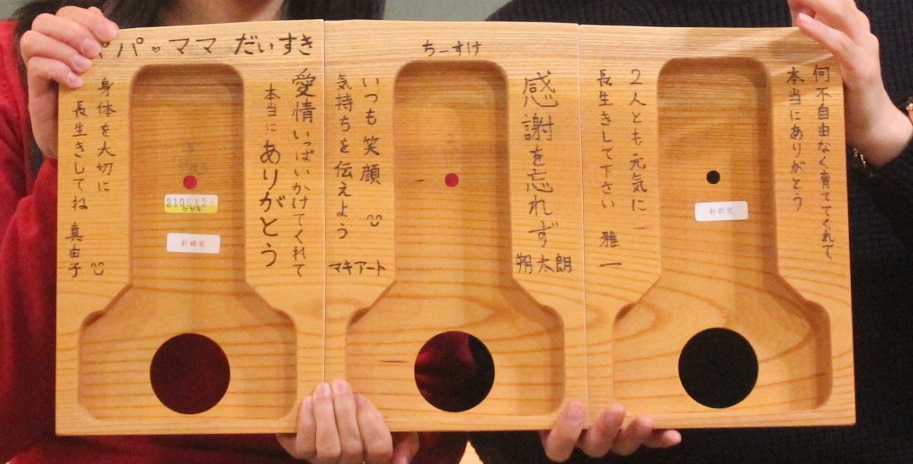 パパ♥ママ だいすき
愛情いっぱいかけてくれて
本当に ありがとう
身体を大切に
長生きしてね 真由子
210512
ケヤキ
新婦家
ちーすけ
感謝を忘れず
朔太朗
いつも笑顔
気持ちを伝えよう
マキアート
何不自由なく育ててくれて
本当にありがとう
2人とも元気に
長生きして下さい 雅一
新郎家